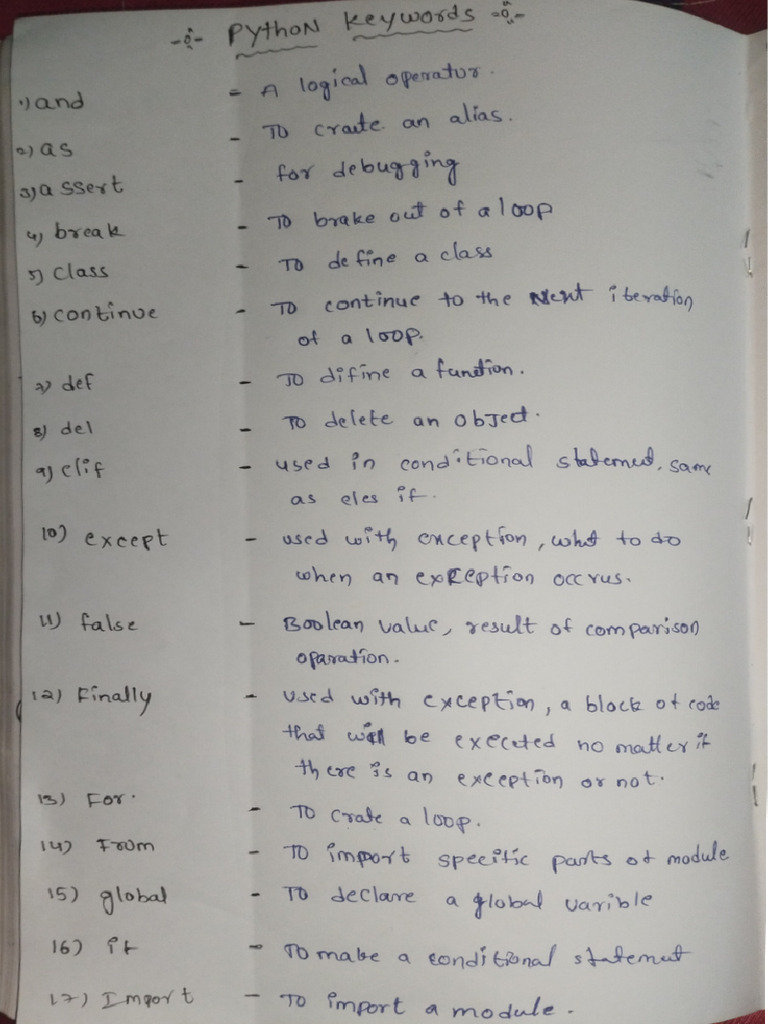 Python Keywords
1) and - A logical operator.
2) as - To craete an alias.
3) assert - for debugging
4) break - To brake out of a loop
5) class - To define a class
6) continue - To continue to the Next iteration
of a loop.
7) def - To difine a function.
8) del - To delete an object.
9) elif - used in conditional statement, same
as eles if.
10) except - used with exception, what to do
when an exception occrus.
11) false - Boolean value, result of comparison
oparation.
12) Finally - used with exception, a block of code
that will be execeted no matter if
there is an exception or not.
13) For. - To crate a loop.
14) From - To import specific parts of module
15) global - To declare a global varible
16) if - To make a conditional statement
17) Import - To import a module.